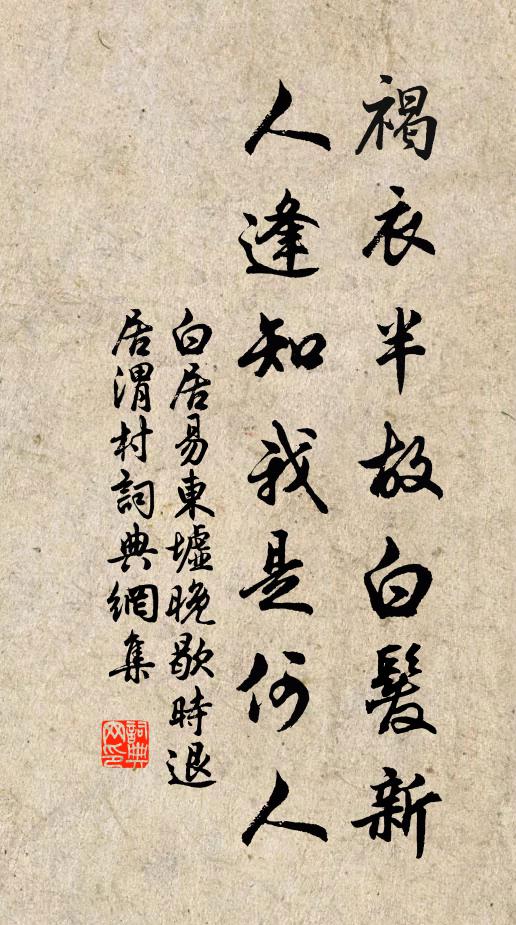 褐衣半故白髮新
人逢知我是何人
白居易東墟晚歇時退
居渭村詞典網集
詞典
网印